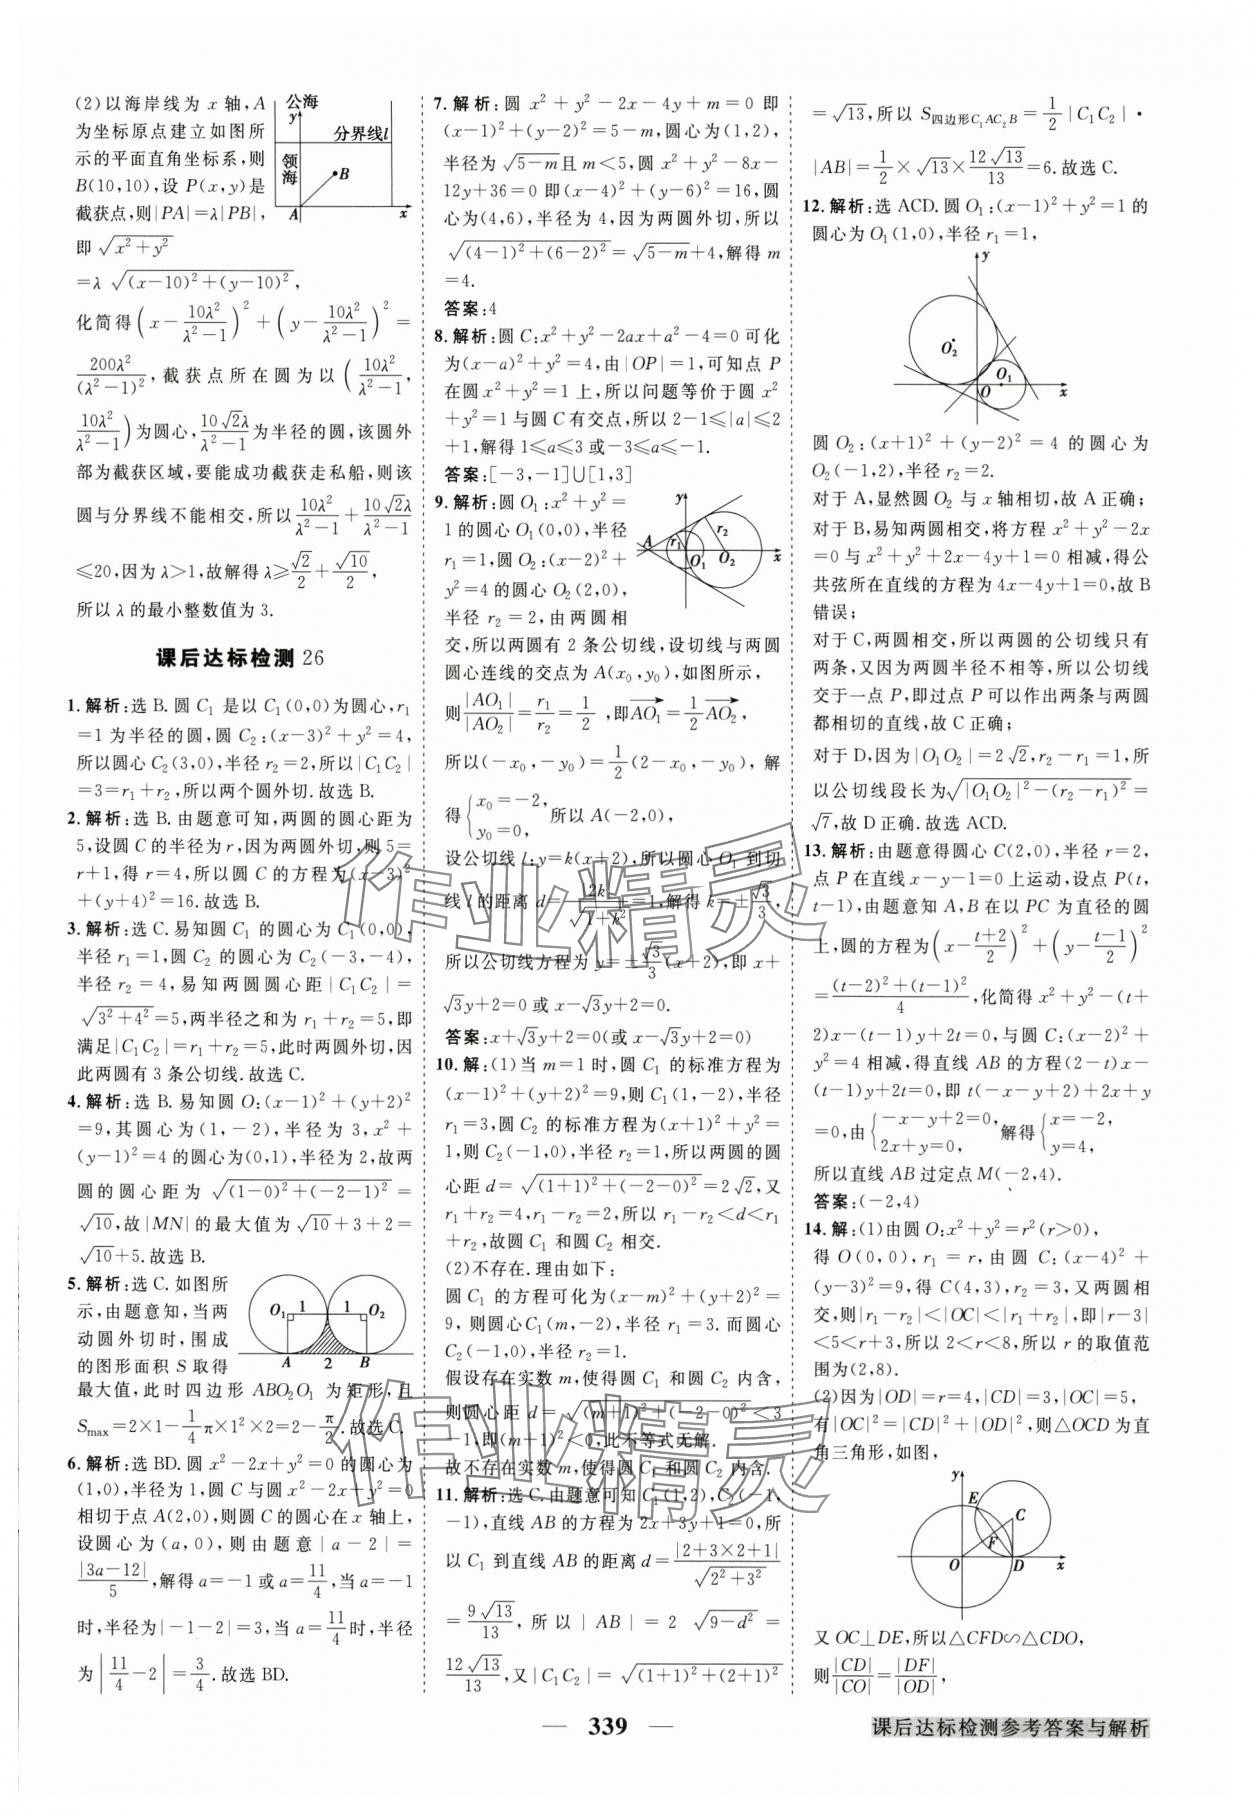 (2)以海岸线为 x 轴,A
为坐标原点建立如图所
示的平面直角坐标系,则
B(10,10),设 P(x,y)是
截获点,则|PA|=λ|PB|,
公海
y
分界线l
领海
B
A
x
即 √(x²+y²)
=λ √((x-10)²+(y-10)²),
化简得(x-10λ²/(λ²-1))²+(y-10λ²/(λ²-1))²=
200λ²/(λ²-1)²,截获点所在圆为以(10λ²/(λ²-1),
10λ²/(λ²-1))为圆心,10√2λ/(λ²-1)为半径的圆,该圆外
部为截获区域,要能成功截获走私船,则该
圆与分界线不能相交,所以10λ²/(λ²-1)+10√2λ/(λ²-1)
≤20,因为 λ>1,故解得 λ≥√2/2+√10/2,
所以 λ 的最小整数值为 3.
课后达标检测 26
1.解析:选 B.圆 C₁ 是以 C₁(0,0)为圆心,r₁
=1 为半径的圆,圆 C₂:(x-3)²+y²=4,
所以圆心 C₂(3,0),半径 r₂=2,所以|C₁C₂|
=3=r₁+r₂,所以两个圆外切.故选 B.
2.解析:选 B.由题意可知,两圆的圆心距为
5,设圆 C 的半径为 r,因为两圆外切,则 5=
r+1,得 r=4,所以圆 C 的方程为(x-3)²
+(y+4)²=16.故选 B.
3.解析:选 C.易知圆 C₁ 的圆心为 C₁(0,0),
半径 r₁=1,圆 C₂ 的圆心为 C₂(-3,-4),
半径 r₂=4,易知两圆圆心距|C₁C₂|=
√(3²+4²)=5,两半径之和为 r₁+r₂=5,即
满足|C₁C₂|=r₁+r₂=5,此时两圆外切,因
此两圆有 3 条公切线.故选 C.
4.解析:选 B.易知圆 O:(x-1)²+(y+2)²
=9,其圆心为(1,-2),半径为 3,x²+
(y-1)²=4 的圆心为(0,1),半径为 2,故两
圆的圆心距为 √((1-0)²+(-2-1)²)=
√10,故|MN|的最大值为 √10+3+2=
√10+5.故选 B.
5.解析:选 C.如图所
示,由题意知,当两
动圆外切时,围成
的图形面积 S 取得
O₁ 1 1 O₂
A 2 B
最大值,此时四边形 ABO₂O₁ 为矩形,且
Smax=2×1-1/4π×1²×2=2-π/2.故选 C.
6.解析:选 BD.圆 x²-2x+y²=0 的圆心为
(1,0),半径为 1,圆 C 与圆 x²-2x+y²=0
相切于点 A(2,0),则圆 C 的圆心在 x 轴上,
设圆心为(a,0),则由题意|a-2|=
|3a-12|/5,解得 a=-1 或 a=11/4,当 a=-1
时,半径为|-1-2|=3,当 a=11/4时,半径
为|11/4-2|=3/4.故选 BD.
7.解析:圆 x²+y²-2x-4y+m=0 即
(x-1)²+(y-2)²=5-m,圆心为(1,2),
半径为 √(5-m)且 m<5,圆 x²+y²-8x-
12y+36=0 即(x-4)²+(y-6)²=16,圆
心为(4,6),半径为 4,因为两圆外切,所以
√((4-1)²+(6-2)²)=√(5-m)+4,解得 m
=4.
答案:4
8.解析:圆 C:x²+y²-2ax+a²-4=0 可化
为(x-a)²+y²=4,由|OP|=1,可知点 P
在圆 x²+y²=1 上,所以问题等价于圆 x²
+y²=1 与圆 C 有交点,所以 2-1≤|a|≤2
+1,解得 1≤a≤3 或-3≤a≤-1.
答案:[-3,-1]∪[1,3]
9.解析:圆 O₁:x²+y²=
1 的圆心 O₁(0,0),半径
r₁=1,圆 O₂:(x-2)²+
y²=4 的圆心 O₂(2,0),
半径 r₂=2,由两圆相
y
A r₁ r₂
O₁ O₂ x
交,所以两圆有 2 条公切线,设切线与两圆
圆心连线的交点为 A(x₀,y₀),如图所示,
则|AO₁|/|AO₂|=r₁/r₂=1/2,即AO₁→=1/2AO₂→,
所以(-x₀,-y₀)=1/2(2-x₀,-y₀),解
得{x₀=-2, y₀=0, 所以 A(-2,0),
设公切线 l:y=k(x+2),所以圆心 O₁ 到切
线 l 的距离 d=|2k|/√(1+k²)=1,解得 k=±√3/3,
所以公切线方程为 y=±√3/3(x+2),即 x+
√3y+2=0 或 x-√3y+2=0.
答案:x+√3y+2=0(或 x-√3y+2=0)
10.解:(1)当 m=1 时,圆 C₁ 的标准方程为
(x-1)²+(y+2)²=9,则 C₁(1,-2),半径
r₁=3,圆 C₂ 的标准方程为(x+1)²+y²=
1,则 C₂(-1,0),半径 r₂=1,所以两圆的圆
心距 d=√((1+1)²+(-2-0)²)=2√2,又
r₁+r₂=4,r₁-r₂=2,所以 r₁-r₂<d<r₁
+r₂,故圆 C₁ 和圆 C₂ 相交.
(2)不存在.理由如下:
圆 C₁ 的方程可化为(x-m)²+(y+2)²=
9,则圆心C₁(m,-2),半径 r₁=3.而圆心
C₂(-1,0),半径 r₂=1.
假设存在实数 m,使得圆 C₁ 和圆 C₂ 内含,
则圆心距 d=√((m+1)²+(-2-0)²)<3
-1,即(m+1)²<0,此不等式无解.
故不存在实数 m,使得圆 C₁ 和圆 C₂ 内含.
11.解析:选 C.由题意可知 C₁(1,2),C₂(-1,
-1),直线 AB 的方程为 2x+3y+1=0,所
以 C₁ 到直线 AB 的距离 d=|2+3×2+1|/√(2²+3²)
=9√13/13,所以|AB|=2√(9-d²)=
12√13/13,又|C₁C₂|=√((1+1)²+(2+1)²)
=√13,所以 S四边形C₁AC₂B=1/2|C₁C₂|·
|AB|=1/2×√13×12√13/13=6.故选 C.
12.解析:选 ACD.圆 O₁:(x-1)²+y²=1 的
圆心为 O₁(1,0),半径 r₁=1,
y
O₂
O₁
O x
圆 O₂:(x+1)²+(y-2)²=4 的圆心为
O₂(-1,2),半径 r₂=2.
对于 A,显然圆 O₂ 与 x 轴相切,故 A 正确;
对于 B,易知两圆相交,将方程 x²+y²-2x
=0 与 x²+y²+2x-4y+1=0 相减,得公
共弦所在直线的方程为 4x-4y+1=0,故 B
错误;
对于 C,两圆相交,所以两圆的公切线只有
两条,又因为两圆半径不相等,所以公切线
交于一点 P,即过点 P 可以作出两条与两圆
都相切的直线,故 C 正确;
对于 D,因为|O₁O₂|=2√2,r₂-r₁=1,所
以公切线段长为√(|O₁O₂|²-(r₂-r₁)²)=
√7,故 D 正确.故选 ACD.
13.解析:由题意得圆心 C(2,0),半径 r=2,
点 P 在直线 x-y-1=0 上运动,设点 P(t,
t-1),由题意知 A,B 在以 PC 为直径的圆
上,圆的方程为(x-(t+2)/2)²+(y-(t-1)/2)²
=((t-2)²+(t-1)²)/4,化简得 x²+y²-(t+
2)x-(t-1)y+2t=0,与圆 C:(x-2)²+
y²=4 相减,得直线 AB 的方程(2-t)x-
(t-1)y+2t=0,即 t(-x-y+2)+2x+y
=0,由{-x-y+2=0, 2x+y=0, 解得{x=-2, y=4,
所以直线 AB 过定点 M(-2,4).
答案:(-2,4)
14.解:(1)由圆 O:x²+y²=r²(r>0),
得 O(0,0),r₁=r,由圆 C:(x-4)²+
(y-3)²=9,得 C(4,3),r₂=3,又两圆相
交,则|r₁-r₂|<|OC|<|r₁+r₂|,即|r-3|
<5<r+3,所以 2<r<8,所以 r 的取值范
围为(2,8).
(2)因为|OD|=r=4,|CD|=3,|OC|=5,
有|OC|²=|CD|²+|OD|²,则△OCD 为直
角三角形,如图,
y
E
C
F
O D x
又 OC⊥DE,所以△CFD∽△CDO,
则|CD|/|CO|=|DF|/|OD|,
作业精灵
作业精灵
— 339 —
课后达标检测参考答案与解析